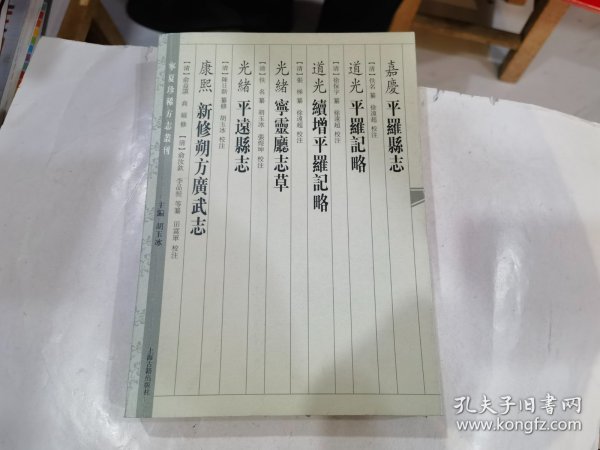 嘉慶 平羅縣志
【清】佚名 纂 徐遠超 校注
道光 平羅記略
【清】徐保字 纂 徐遠超 校注
道光 續增平羅記略
【清】張梯 纂 徐遠超 校注
光緒 寧靈廳志草
【清】佚名 纂 胡玉冰 張煜坤 校注
光緒 平遠縣志
【清】陳日新 纂修 胡玉冰 校注
康熙 新修朔方廣武志
【清】俞益謨 高嶷 修 【清】俞汝欽 李品𬪩 等纂 田富軍 校注
寧夏珍稀方志叢刊
主編 胡玉冰
上海古籍出版社
孔夫子旧书网
www.kongfz.com